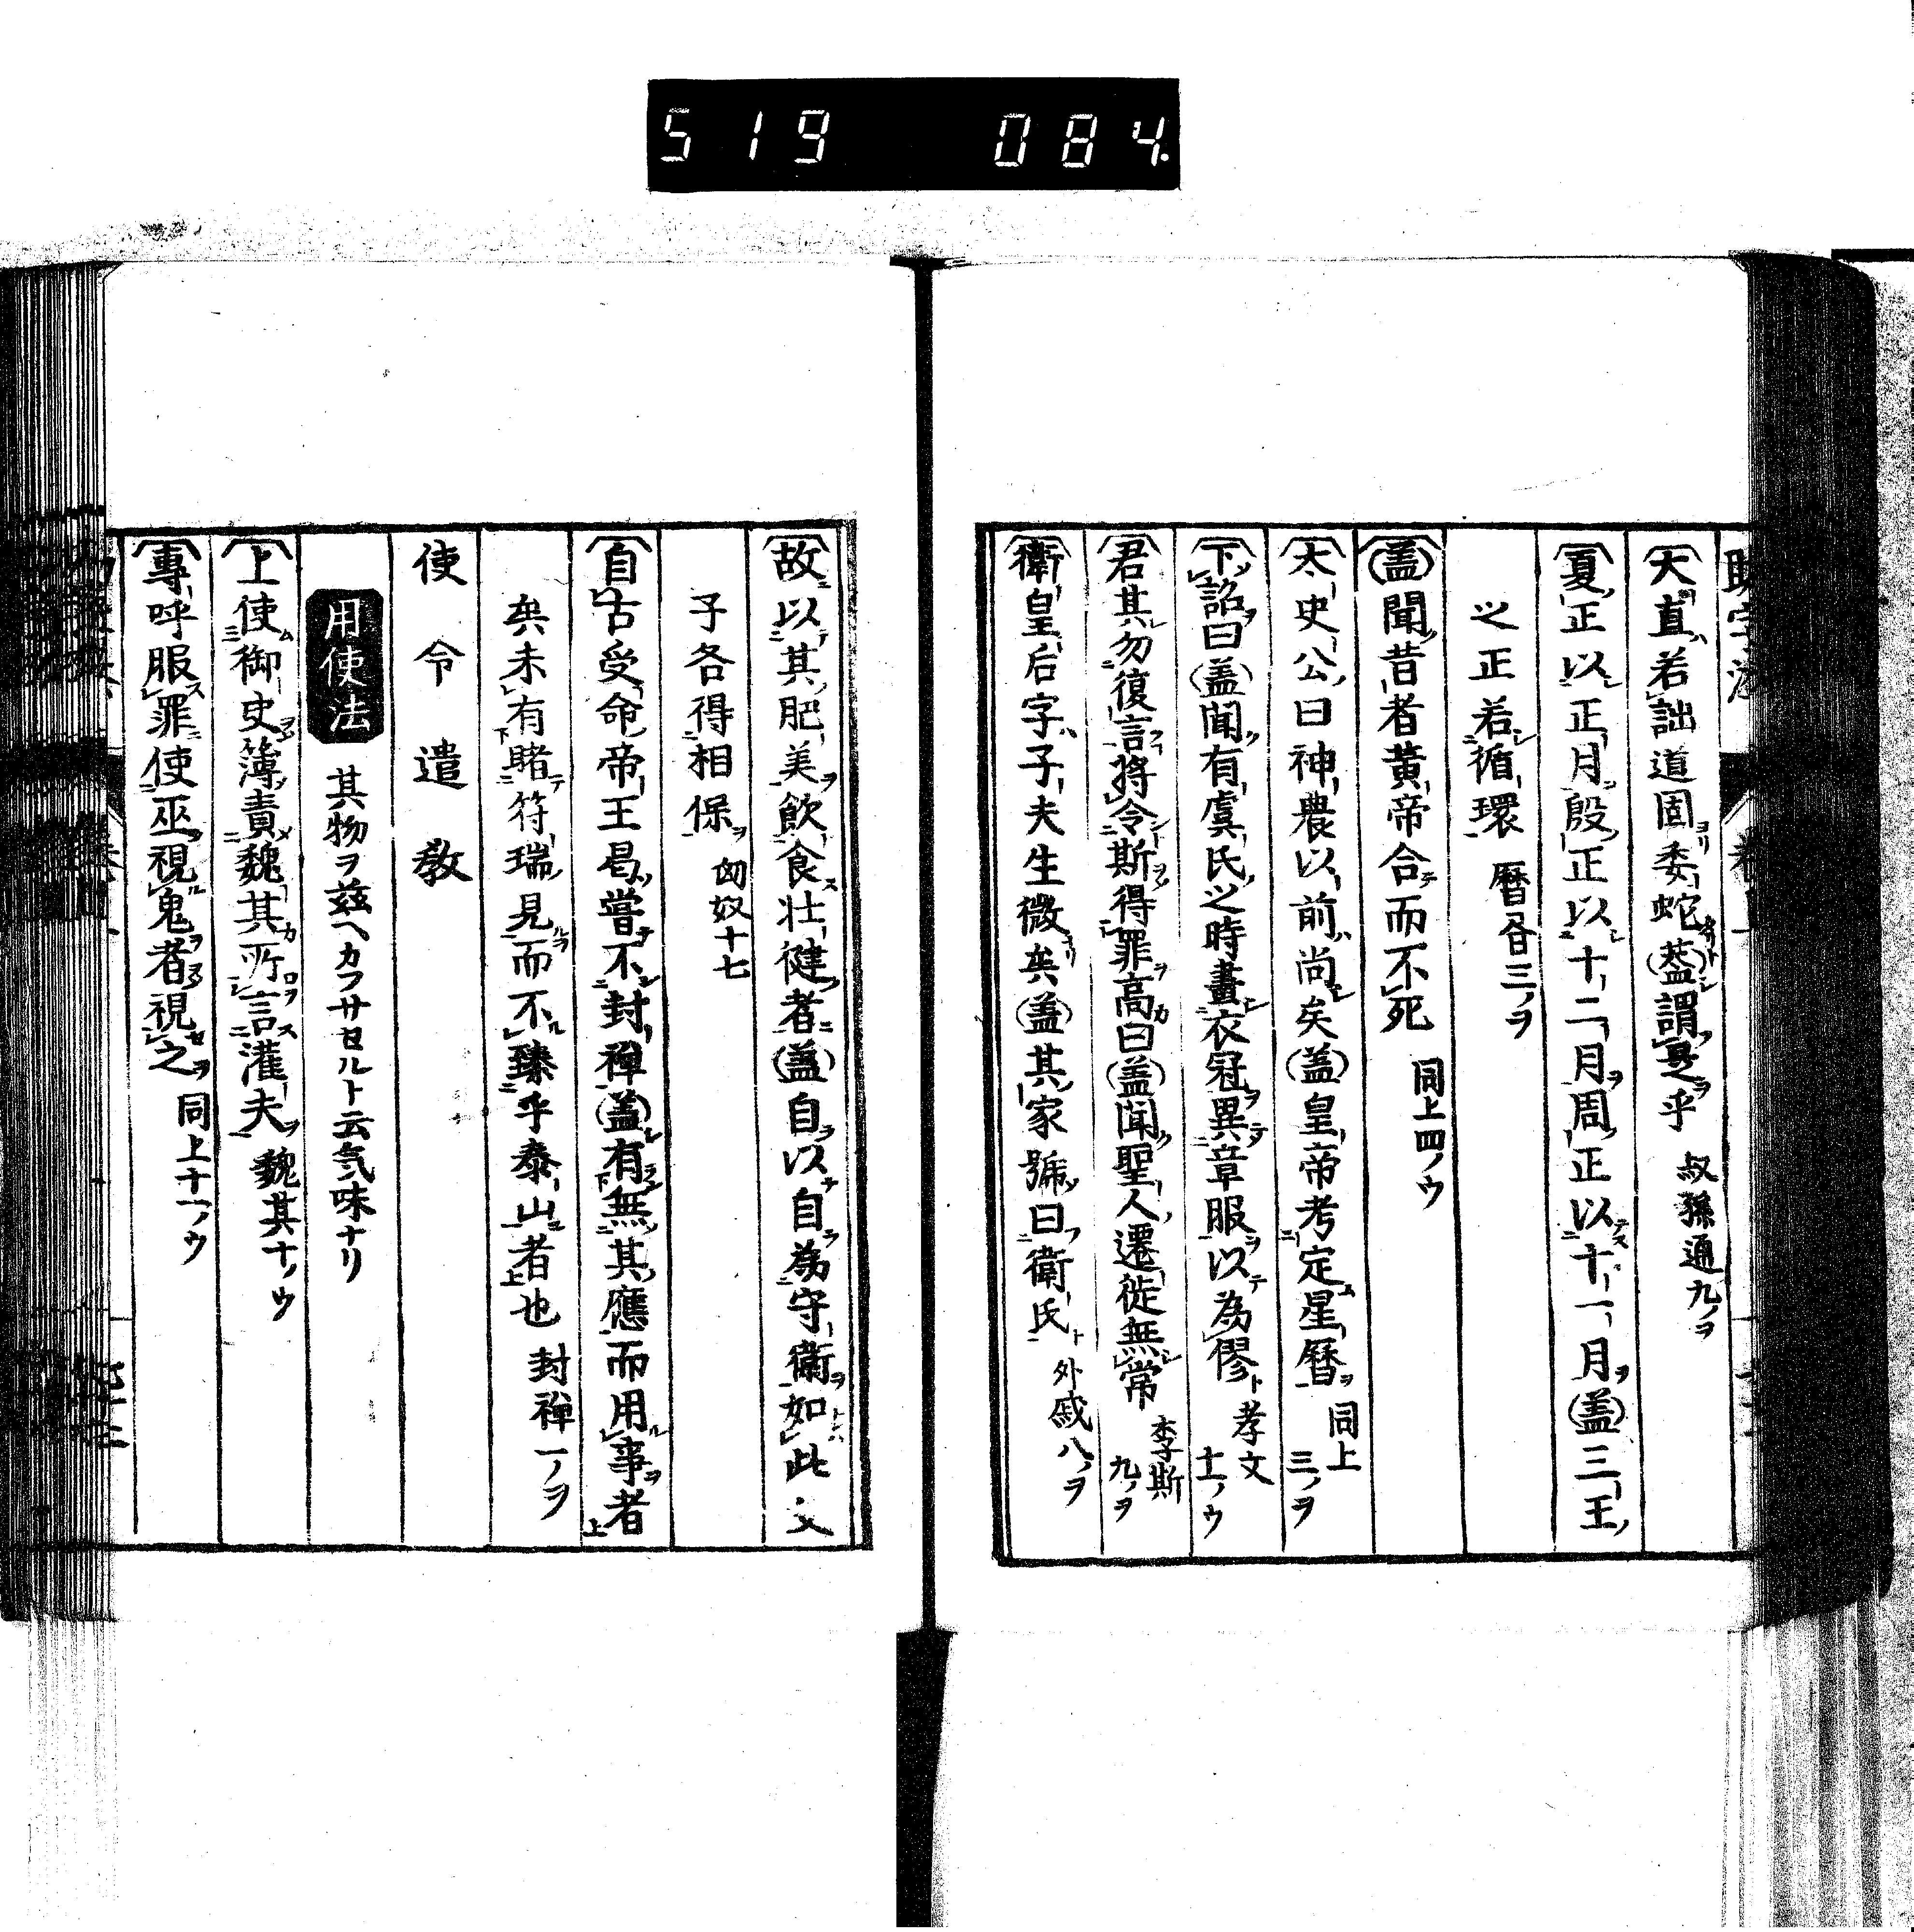 519 084.
大直若詘道固委蛇蓋謂是乎 叔孫通九ノヲ
夏正以正月殷正以十二月周正以十一月盖三王
之正若循環 暦書三ノヲ
盖聞昔者黄帝合而不死 同上四ノウ
太史公曰神農以前尚矣盖皇帝考定星暦 同上三ノヲ
下詔曰盖聞有虞氏之時畫衣冠異章服以為僇 孝文十一ノウ
君其勿復言將令斯得罪高曰盖聞聖人遷徙無常 李斯九ノヲ
衛皇后字子夫生微矣盖其家號曰衛氏 外戚八ノヲ
故以其肥美飲食壮健者盖自以自為守衛如此父
子各得相保 匈奴十七
自古受命帝王曷嘗不封禅盖有無其應而用事者
矣未有睹符瑞見而不臻乎泰山者也 封禅一ノヲ
使令遣教
用使法 其物ヲ茲ヘカフサセルト云気味ナリ
上使御史簿責魏其所言灌夫 魏其十ノウ
專呼服罪使巫視鬼者視之 同上十一ノウ